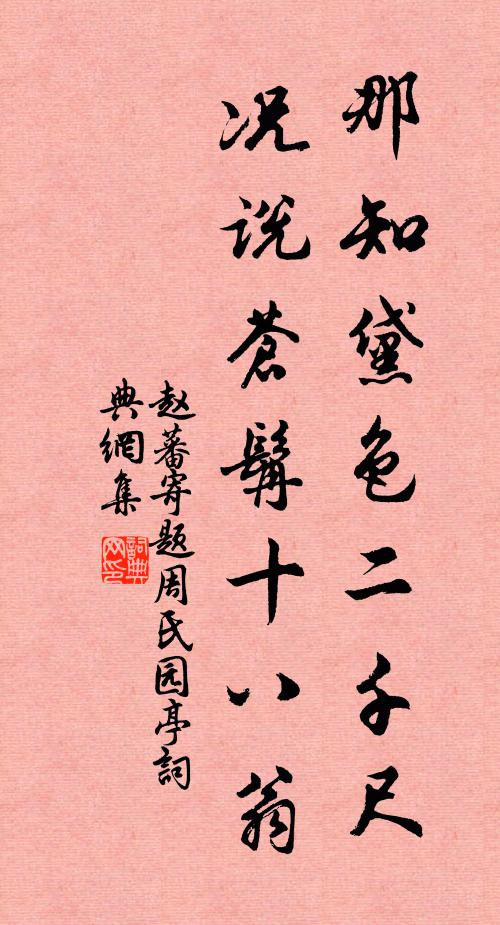 那知黛色二千尺
况说苍髯十八翁
赵蕃寄题周氏园亭詞
典網集
詞典网印